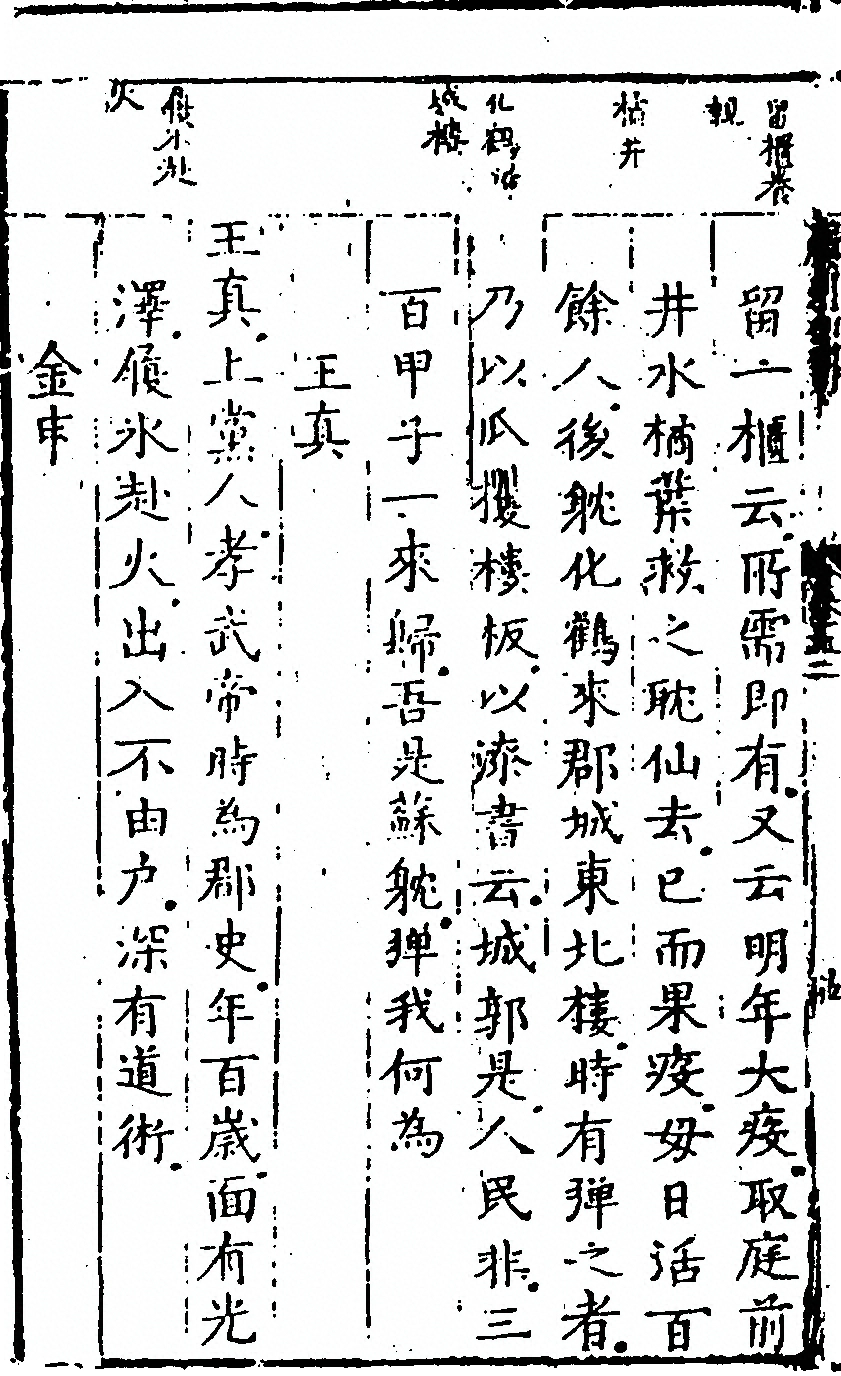 留櫃養
親
橘井
化鶴詣
城樓
履氷赴
火
留一櫃云所需即有又云明年大疫取庭前
井水橘葉救之耽仙去已而果疫毋日活百
餘人後躭化鶴來郡城東北樓時有弹之者
乃以爪攫樓板以漆書云城郭是人民非三
百甲子一來歸吾是蘇躭弹我何為
王真
王真上黨人孝武帝時為郡史年百歲面有光
澤履氷赴火出入不由户深有道術
金申